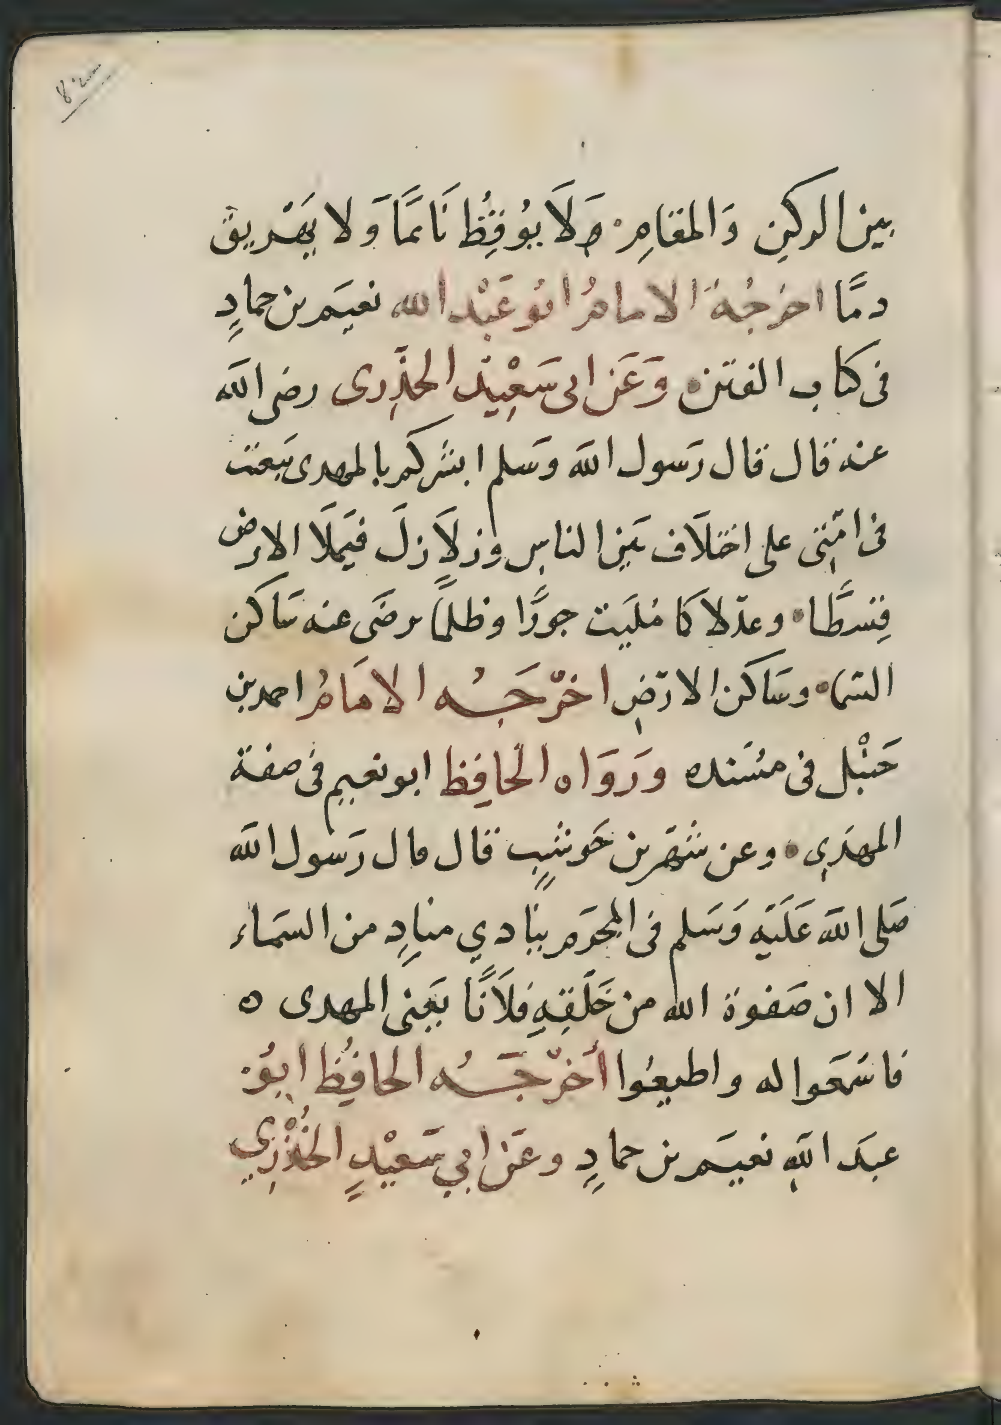 بين الركن والمقام ولا يوقظ نائما ولا يهريق
دمًا اخرجه الامام ابو عبد الله نعيم بن حماد
فى كتاب الفتن وعن ابى سعيد الخدرى رضى الله
عنه قال قال رسول الله وسلم ابشركم بالمهدى يبعث
فى امتى على اختلاف بين الناس وزلازل فيملا الارض
قسطا وعدلا كما مليت جورا وظلما يرضى عنه ساكن
السما وساكن الارض اخرجه الامام احمد بن
حنبل فى مسنده ورواه الحافظ ابو نعيم فى صفة
المهدي وعن شهر بن حوشب قال قال رسول الله
صلى الله عليه وسلم فى المحرم ينادي مناد من السماء
الا ان صفوة الله من خلقه فلانًا يعنى المهدى ه
فاسمعوا له واطيعوا أخرجه الحافظ ابو
عبد الله نعيم بن حماد وعن ابي سعيد الخدري